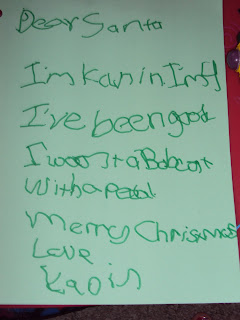 Dear Santa
I'm Kanin I'm 5
I've been good
I woost a Bobcat
with a Pedal
Merry Chrismas
Love
Kanin